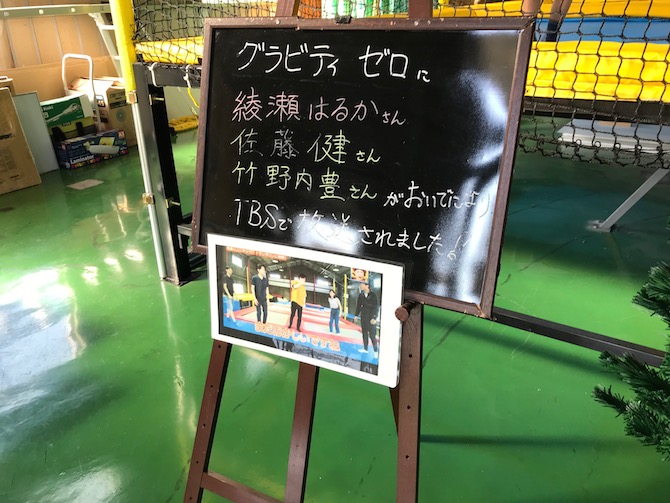 グラビティ ゼロに
綾瀬はるかさん
佐藤 健さん
竹野内豊さん がおいでになり
TBSで放送されました!!
Laminator